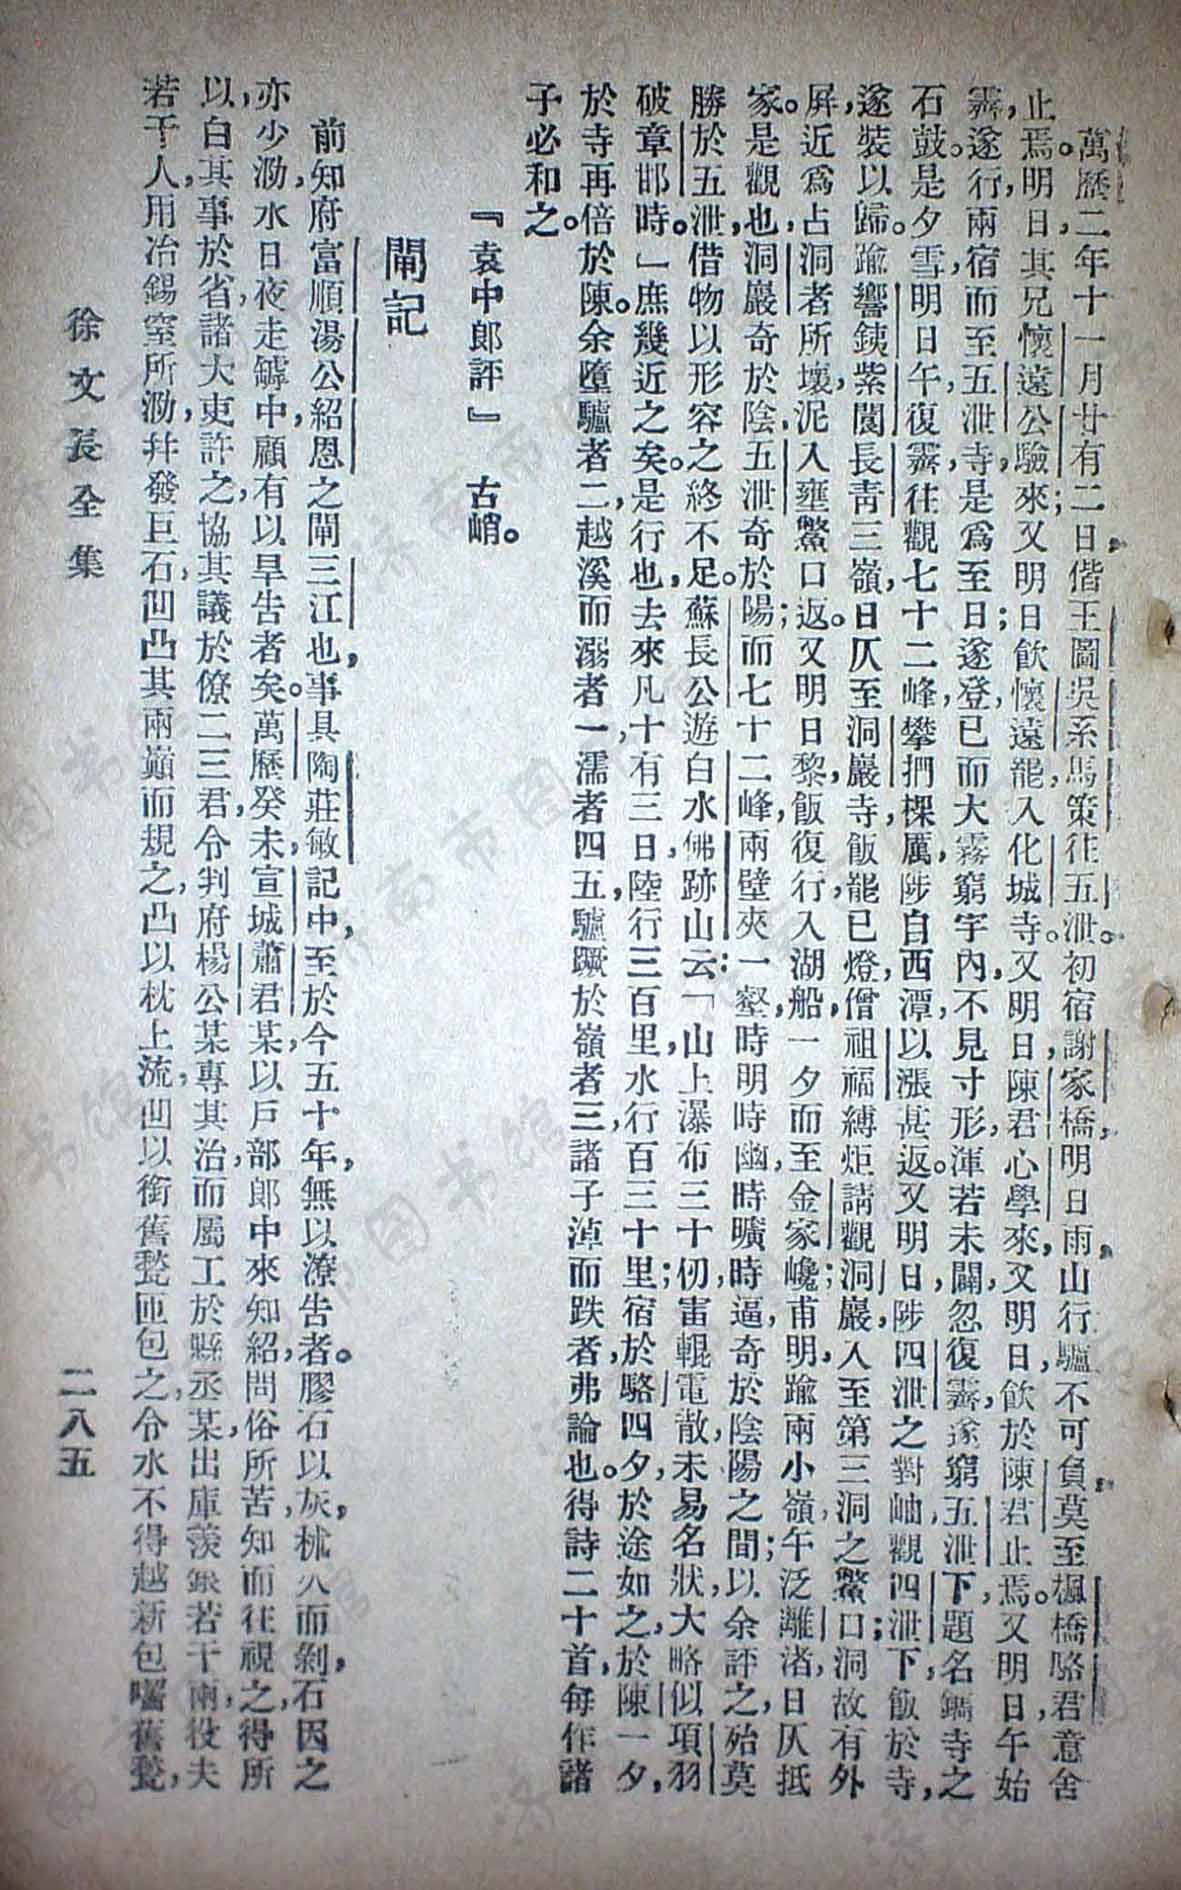 萬歷二年十一月廿有二日，偕王圖吳系馬策往五泄。初宿謝家橋，明日雨，山行，驢不可負，莫至楓橋，駱君意舍
止焉。明日，其兄懷遠公驗來；又明日飲懷遠，罷，入化城寺。又明日，陳君心學來，又明日，飲於陳君，止焉。又明日午始
霽，遂行，兩宿而至五泄寺，是爲至日；遂登，已而大霧，窮宇內，不見寸形，渾若未闢，忽復霽，遂窮五泄下，題名鐫寺之
石鼓。是夕雪，明日午復霽，往觀七十二峰，攀捫棵厲，陟自西潭，以漲甚返。又明日，陟四泄之對岫，觀四泄下，飯於寺，
遂裝以歸。踰響鐵，紫閬，長青三嶺，日仄至洞巖寺，飯罷已燈，僧祖福縛炬請觀洞巖，入至第三洞之鱉口；洞故有外
屏，近爲占洞者所壞，泥入壅鱉口，返。又明日黎，飯復行，入湖船，一夕而至金家巉；甫明，踰兩小嶺，午泛離渚，日仄抵
家。是觀也，洞巖奇於陰，五泄奇於陽；而七十二峰，兩壁夾一壑，時明時幽，時曠時逼，奇於陰陽之間；以余評之，殆莫
勝於五泄，借物以形容之，終不足。蘇長公遊白水佛跡山云：「山上瀑布三十仞，雷輥電散，未易名狀，大略似項羽
破章邯時。」庶幾近之矣。是行也，去來凡十有三日，陸行三百里，水行百三十里；宿於駱四夕，於途如之，於陳一夕，
於寺再倍於陳。余墮驢者二，越溪而溺者一，濡者四五，驢蹶於嶺者三，諸子淖而跌者，弗論也。得詩二十首，每作，諸
子必和之。
『袁中郎評』　古峭。
閘記
前知府富順湯公紹恩之閘三江也，事具陶莊敏記中，至於今五十年，無以潦告者。膠石以灰，秫火而剝，石因之
亦少泐，水日夜走罅中，顧有以旱告者矣。萬歷癸未，宣城蕭君某，以戶部郎中來知紹，問俗所苦，知而往視之，得所
以，白其事於省，諸大吏許之，協其議於僚二三君，令判府楊公某專其治，而屬工於縣丞某，出庫羨銀若干兩，役夫
若干人，用冶錫窒所泐，幷發巨石，凹凸其兩巔而規之，凸以枕上流，凹以銜舊甃，匝包之，令水不得越新包嚙舊甃，
徐文長全集
二八五